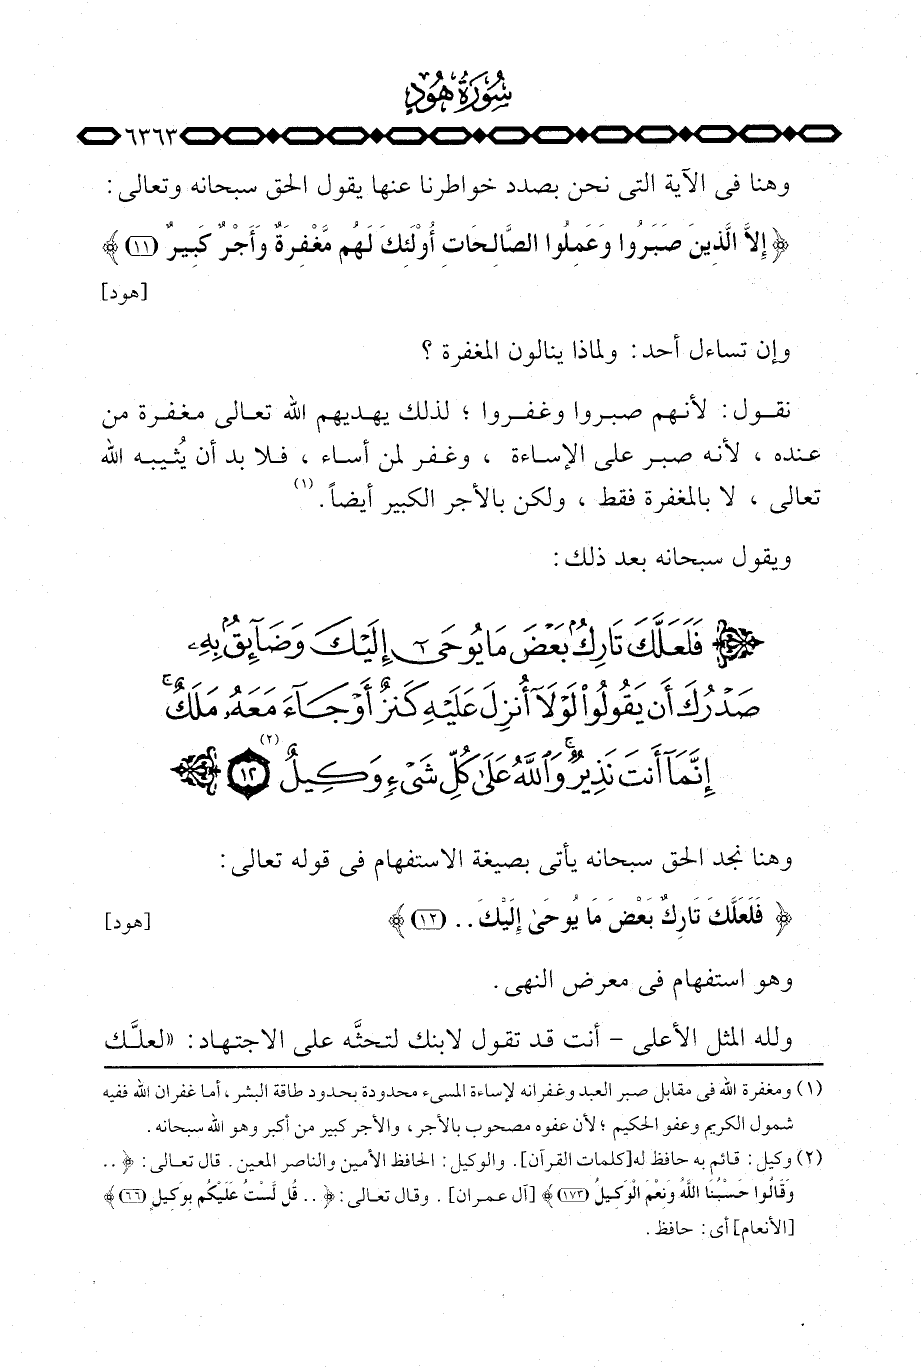 سُورَةُ هُودٍ
٦٣٦٣
وهنا فى الآية التى نحن بصدد خواطرنا عنها يقول الحق سبحانه وتعالى :
﴿ إِلاَّ الَّذِينَ صَبَرُوا وَعَمِلُوا الصَّالِحَاتِ أُوْلَئِكَ لَهُم مَّغْفِرَةٌ وَأَجْرٌ كَبِيرٌ (١١) ﴾
[هود]
وإن تساءل أحد : ولماذا ينالون المغفرة ؟
نقول : لأنهم صبروا وغفروا ؛ لذلك يهديهم الله تعالى مغفرة من
عنده ، لأنه صبر على الإساءة ، وغفر لمن أساء ، فلا بد أن يُثيبه الله
تعالى ، لا بالمغفرة فقط ، ولكن بالأجر الكبير أيضاً .(١)
ويقول سبحانه بعد ذلك :
فَلَعَلَّكَ تَارِكُۢ بَعْضَ مَا يُوحَىٰٓ إِلَيْكَ وَضَآئِقُۢ بِهِۦ
صَدْرُكَ أَن يَقُولُوا۟ لَوْلَآ أُنزِلَ عَلَيْهِ كَنزٌ أَوْ جَآءَ مَعَهُۥ مَلَكٌ ۚ
إِنَّمَآ أَنتَ نَذِيرٌ ۚ وَٱللَّهُ عَلَىٰ كُلِّ شَىْءٍ وَكِيلٌ (٢) ١٢
وهنا نجد الحق سبحانه يأتى بصيغة الاستفهام فى قوله تعالى :
﴿ فَلَعَلَّكَ تَارِكٌ بَعْضَ مَا يُوحَىٰ إِلَيْكَ .. (١٢) ﴾ [هود]
وهو استفهام فى معرض النهى .
ولله المثل الأعلى – أنت قد تقول لابنك لتحثَّه على الاجتهاد : «لعلَّك
(١) ومغفرة الله فى مقابل صبر العبد وغفرانه لإساءة المسىء محدودة بحدود طاقة البشر ، أما غفران الله ففيه
شمول الكريم وعفو الحكيم ؛ لأن عفوه مصحوب بالأجر ، والأجر كبير من أكبر وهو الله سبحانه .
(٢) وكيل : قائم به حافظ له [كلمات القرآن] . والوكيل : الحافظ الأمين والناصر المعين . قال تعالى : ﴿ ..
وَقَالُوا حَسْبُنَا اللَّهُ وَنِعْمَ الْوَكِيلُ (١٧٣) ﴾ [آل عمران] . وقال تعالى : ﴿ .. قُل لَّسْتُ عَلَيْكُم بِوَكِيلٍ (٦٦) ﴾
[الأنعام] أى : حافظ .